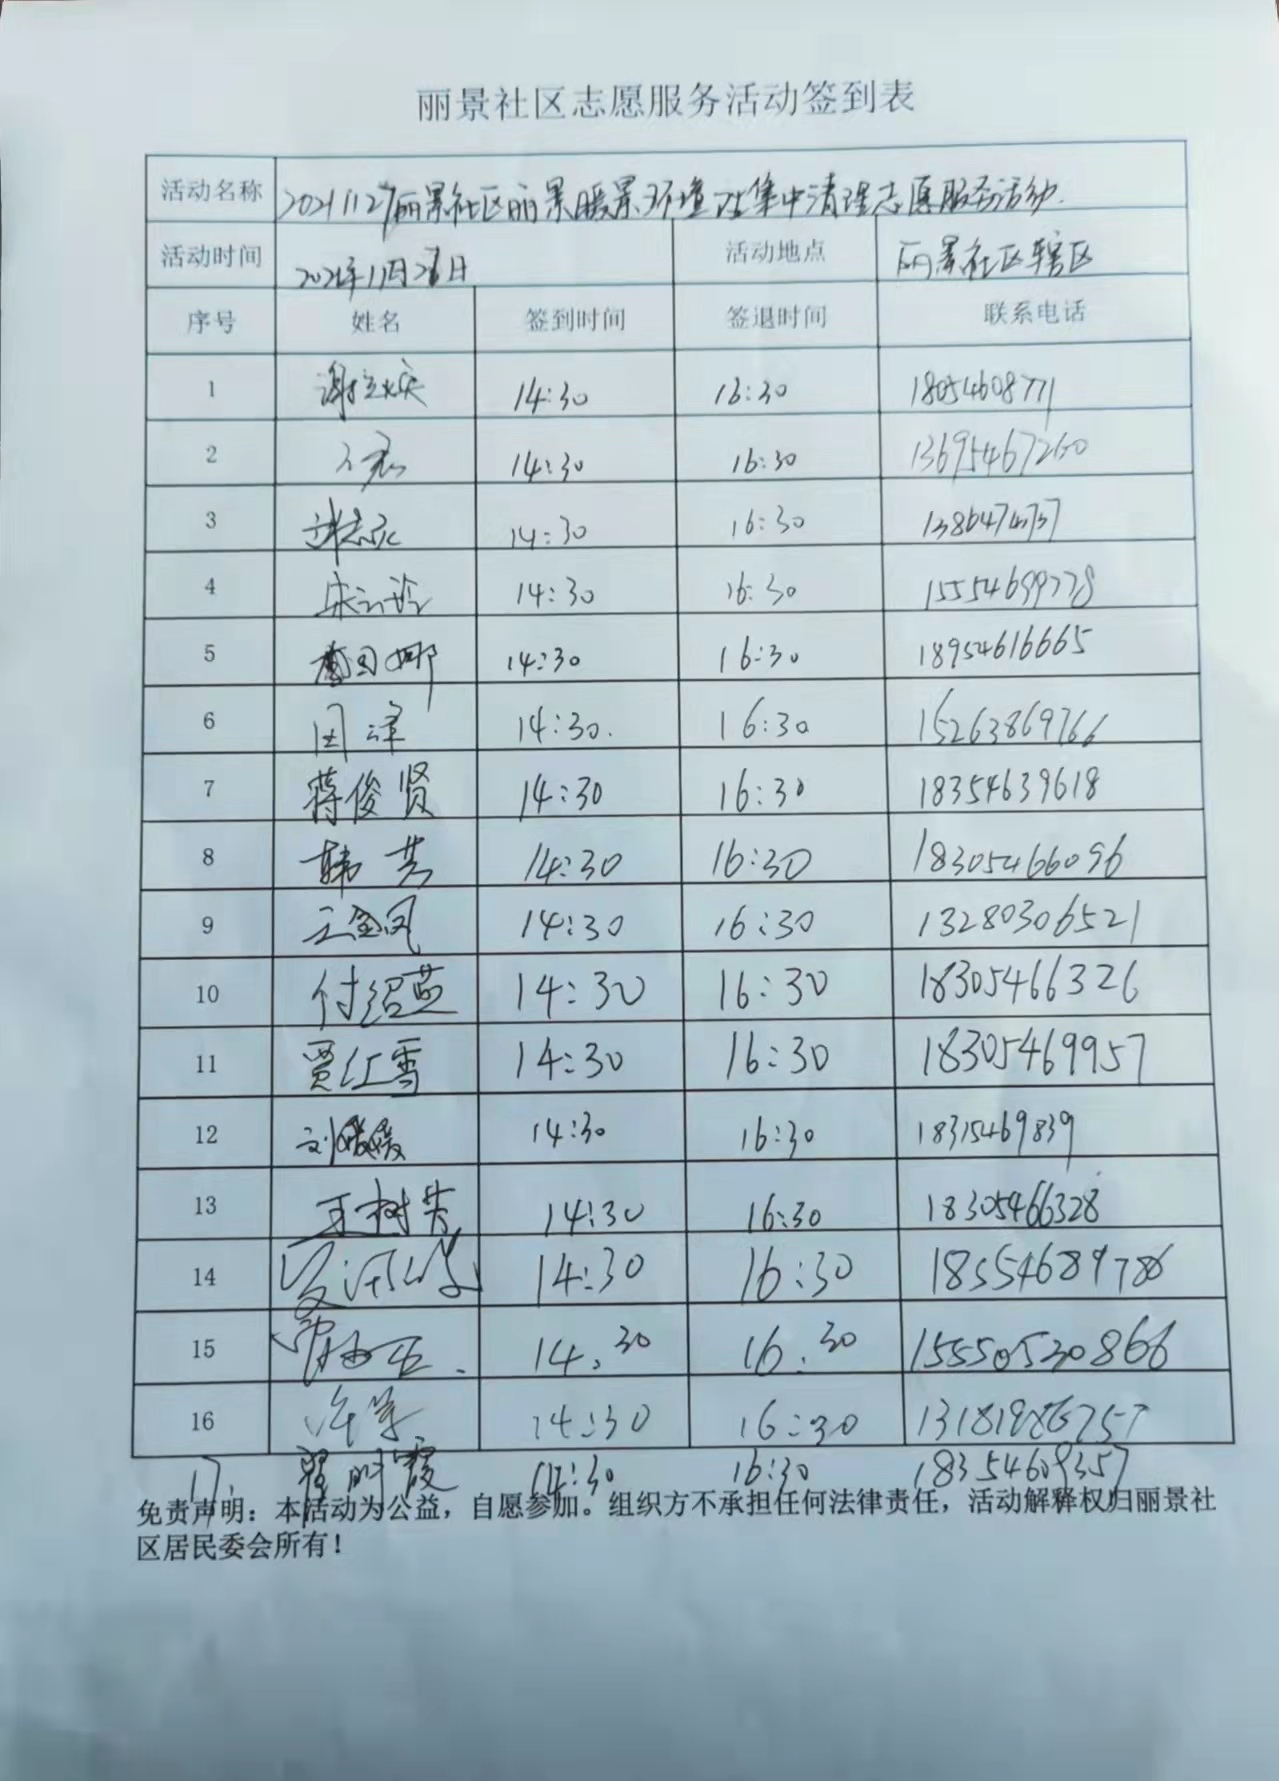 丽景社区志愿服务活动签到表
活动名称 20211127丽景社区丽景暖景环境卫生集中清理志愿服务活动.
活动时间 2021年11月27日 活动地点 丽景社区辖区
序号 姓名 签到时间 签退时间 联系电话
1 14:30 16:30 18054608771
2 14:30 16:30 13695467260
3 14:30 16:30
4 14:30 16:30 15554699778
5 14:30 16:30 18954616665
6 田泽 14:30. 16:30 15263869766
7 蒋俊贤 14:30 16:30 18354639618
8 韩芳 14:30 16:30 18305466096
9 王金凤 14:30 16:30 13280306521
10 付绍燕 14:30 16:30 18305466326
11 贾红雪 14:30 16:30 18305469957
12 刘媛媛 14:30 16:30 18315469839
13 王树芳 14:30 16:30 18305466328
14 14:30 16:30 18554689786
15 14:30 16:30 15550530866
16 14:30 16:30
17. 翟明霞 14:30 16:30 18354609357
免责声明：本活动为公益，自愿参加。组织方不承担任何法律责任，活动解释权归丽景社
区居民委会所有！